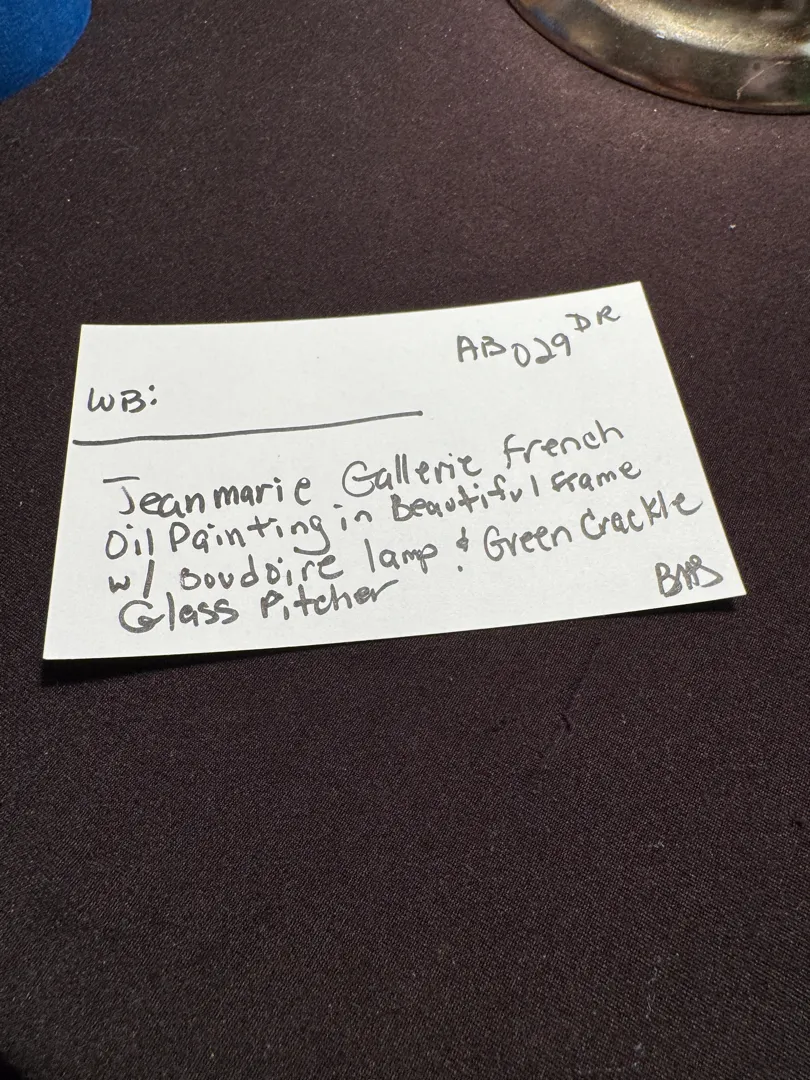 AB029 DR
WB:
Jeanmarie Gallerie french
Oil Painting in Beautiful Frame
w/ Boudoire lamp & Green Crackle
Glass Pitcher
BMB